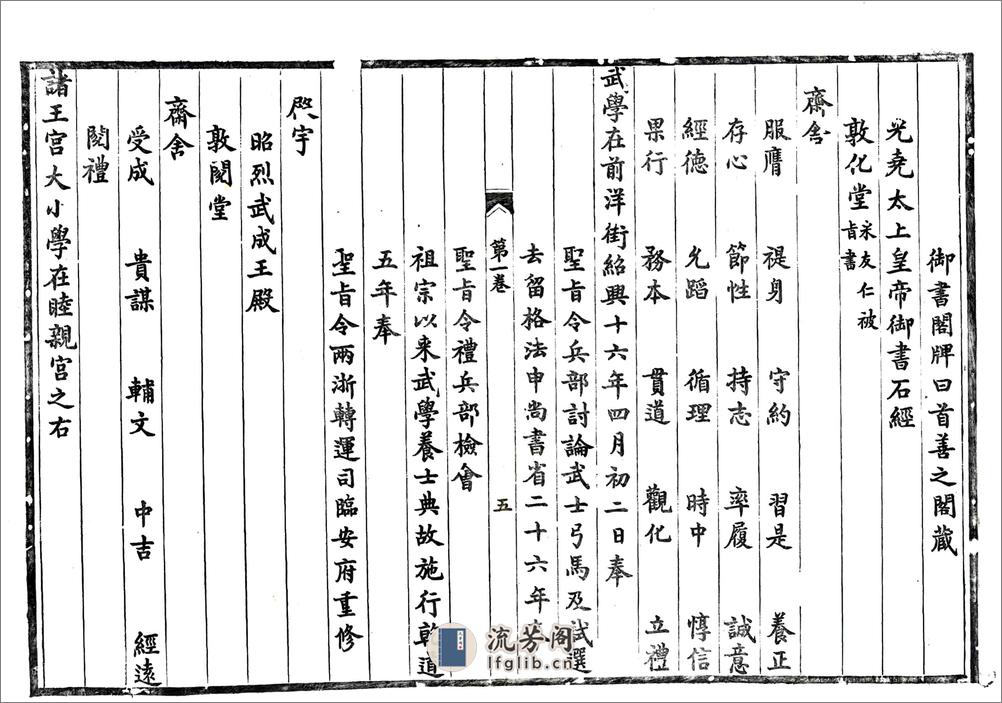 御書閣牌曰首善之閣藏
光堯太上皇帝御書石經
敦化堂米友仁被旨書
齋舍
服膺 禔身 守約 習是 養正
存心 節性 持志 率履 誠意
經德 允蹈 循理 時中 惇信
果行 務本 貫道 觀化 立禮
武學在前洋街紹興十六年四月初二日奉
聖旨令兵部討論武士弓馬及試選
去留格法申尚書省二十六年
第一卷 五
聖旨令禮兵部檢會
祖宗以來武學養士典故施行乾道
五年奉
聖旨令兩浙轉運司臨安府重修
殿宇
昭烈武成王殿
敦閱堂
齋舍
受成 貴謀 輔文 中吉 經遠
閱禮
諸王宮大小學在睦親宮之右
流芳阁
lfglib.cn